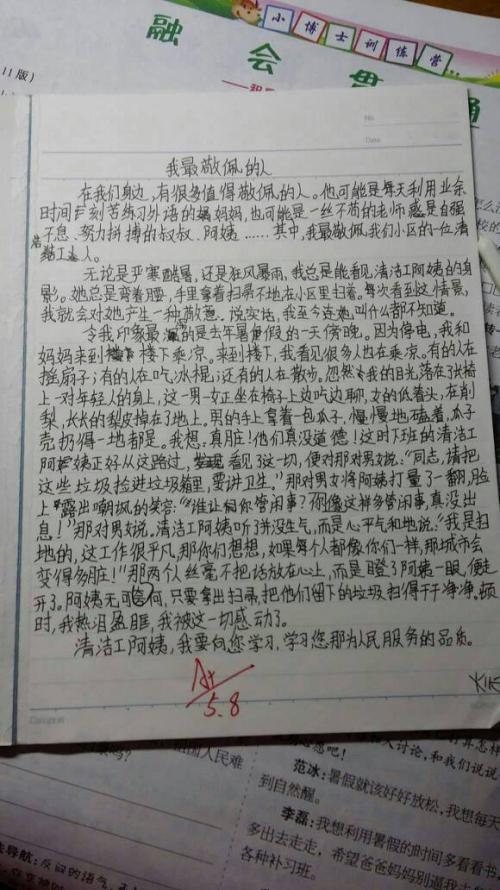 小博士训练营
融会贯通
11版)
No.
Date
我最敬佩的人
在我们身边,有很多值得敬佩的人。他可能是每天利用业余
时间刻苦练习外语的妈妈,也可能是一丝不苟的老师或是自强
不息、努力拼搏的叔叔、阿姨……其中,我最敬佩我们小区的一位清
洁工人。
无论是严寒酷暑,还是狂风暴雨,我总是能看见清洁工阿姨的身
影。她总是弯着腰,手里拿着扫帚不地在小区里扫着。每次看到这情景,
我就会对她产生一种敬意。说实话,我至今连她叫什么都不知道。
令我印象最深的是去年暑假的一天傍晚。因为停电,我和
妈妈来到楼下乘凉。来到楼下,我看见很多人也在乘凉。有的人在
摇扇子;有的人在吃冰棍;还有的人在散步。忽然我的目光落在了张椅
上一对年轻人的身上,这一男一女正坐在椅子上边吃边聊,女的低着头,在削
梨,长长的梨皮掉在了地上。男的手上拿着一包瓜子,慢慢地磕着,瓜子
壳扔得一地都是。我想:真脏!他们真没道德!这时下班的清洁工
阿姨正好从这路过,看见了这一切,便对那对男女说:“同志,请把
这些垃圾捡进垃圾箱里,要讲卫生。”那对男女将阿姨打量了一翻,脸
上露出嘲讽的笑容:“谁让你管闲事?你像这样多管闲事,真没出
息!”那对男女说。清洁工阿姨听了并没生气,而是心平气和地说:“我是扫
地的,这工作很平凡,那你们想想,如果每个人都像你们一样,那城市会
变得多脏!”那两个人丝毫不把话放在心上,而是瞪了阿姨一眼,便走
开了。阿姨无可何,只要拿出扫帚,把他们留下的垃圾扫得干干净净。顿
时,我热泪盈眶,我被这一切感动了。
清洁工阿姨,我要向您学习,学习您那为人民服务的品质。
A+
5.8
人民难
吧!
讨论,和我们说说
范冰:暑假就该好好放松,我想每天
到自然醒。
李磊:我想利用暑假的时间多看看书
多出去走走,希望爸爸妈妈别逼我
各种补习班。
导航:反问的语气